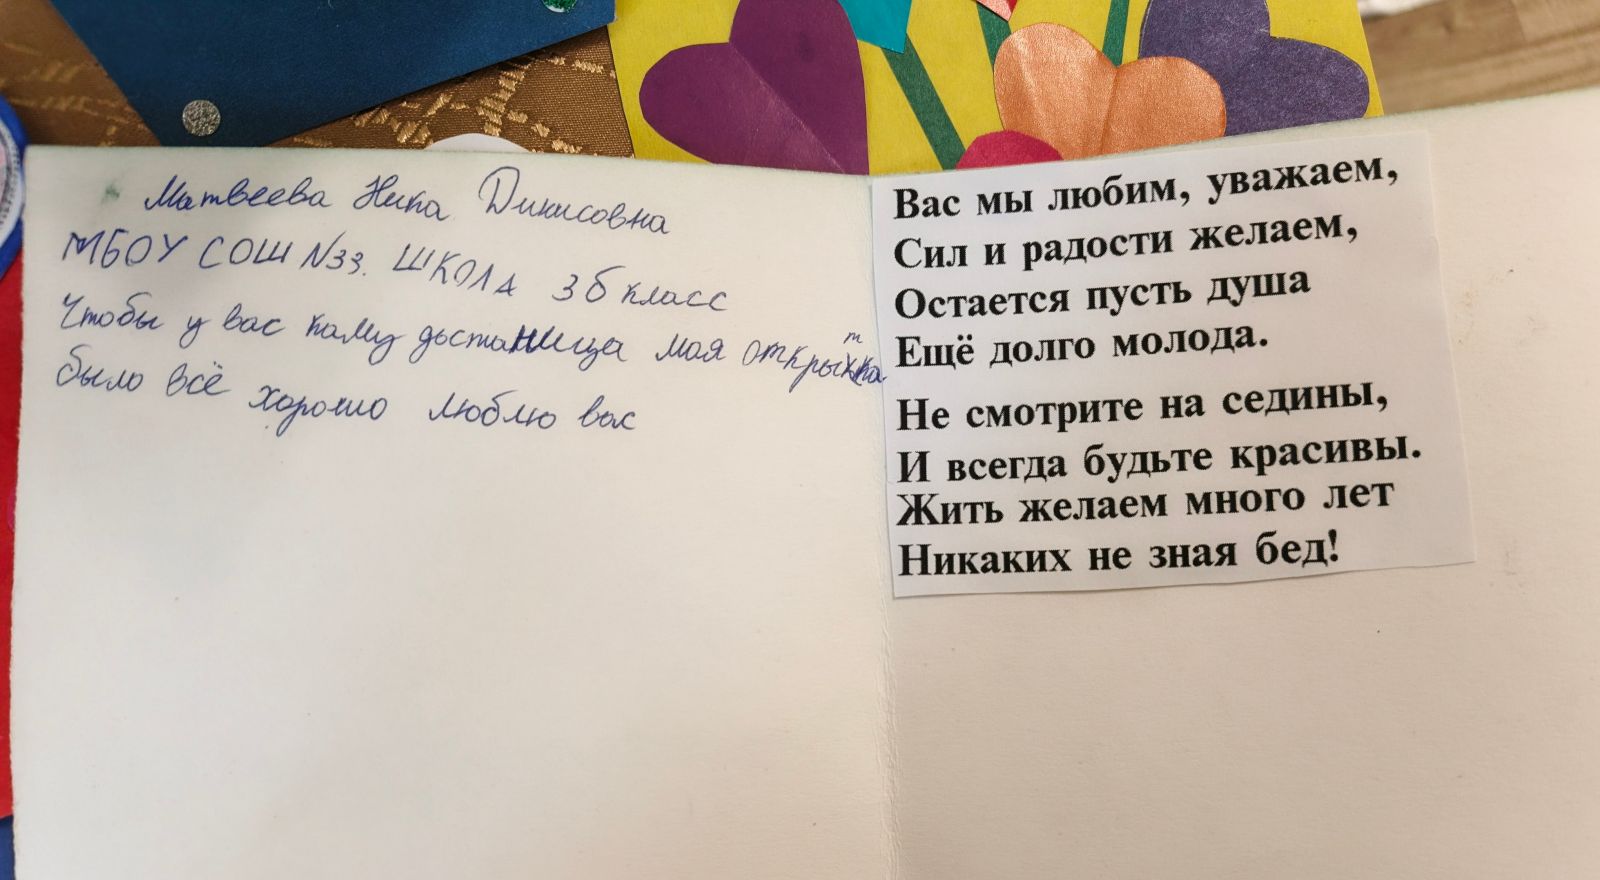 Матвеева Ника Динисовна
МБОУ СОШ №33. ШКОЛА 3б класс
Чтобы у вас каму достаница моя открытка
было всё хорошо люблю вас
Вас мы любим, уважаем,
Сил и радости желаем,
Остается пусть душа
Ещё долго молода.
Не смотрите на седины,
И всегда будьте красивы.
Жить желаем много лет
Никаких не зная бед!